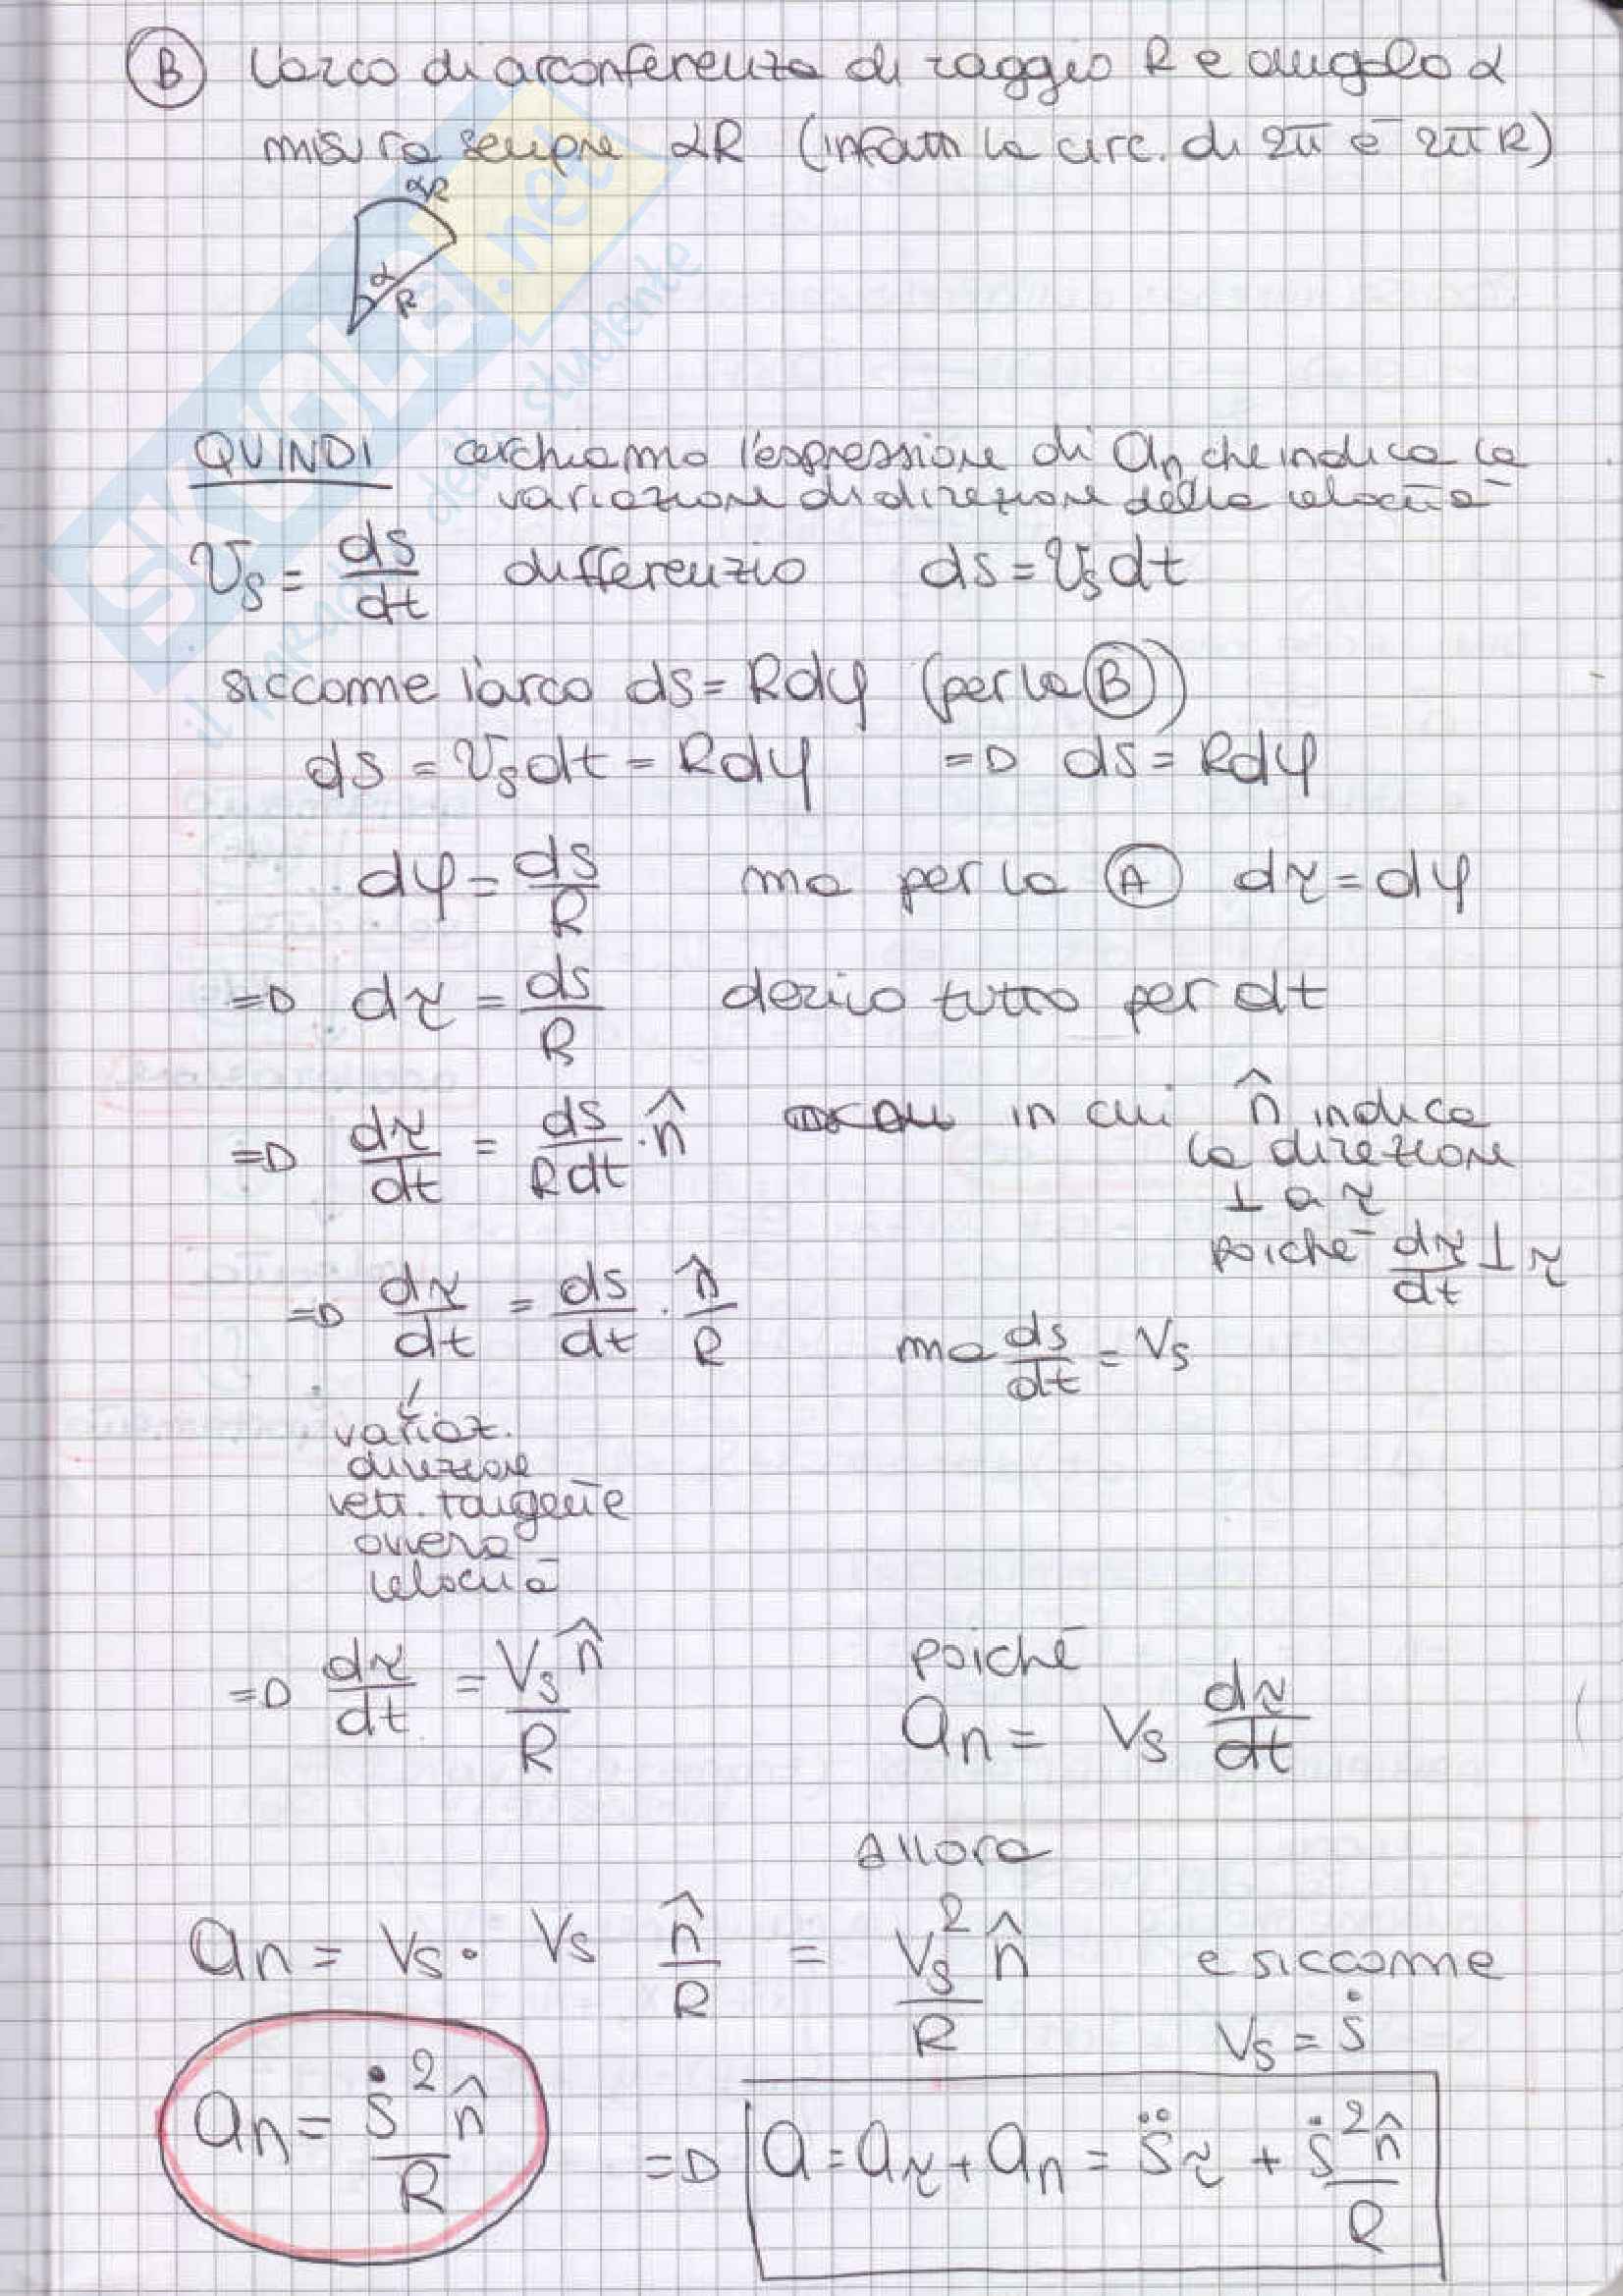 B L'arco di circonferenza di raggio R e angolo α
misura sempre αR (infatti la circ. di 2π è 2πR)
αR
α
R
QUINDI cerchiamo l'espressione di an che indica la
variazione di direzione della velocità
Vs = ds/dt differenzio ds = Vs dt
siccome l'arco ds = Rdφ (per la B)
ds = Vs dt = Rdφ =D ds = Rdφ
dφ = ds/R ma per la A dτ = dφ
=D dτ = ds/R derivo tutto per dt
=D dτ/dt = ds/Rdt · n̂ in cui n̂ indica
la direzione
⊥ a τ
poiché dτ/dt ⊥ τ
=D dτ/dt = ds/dt · n̂/R
ma ds/dt = Vs
variaz.
direzione
vett. tangente
ovvero
velocità
=D dτ/dt = Vs n̂/R
poiché
an = Vs dτ/dt
Allora
an = Vs · Vs n̂/R = Vs² n̂/R e siccome
Vs = ṡ
an = ṡ² n̂/R
=D a = aτ + an = s̈τ + ṡ² n̂/R
SKUOLA.net
il paradiso dello studente